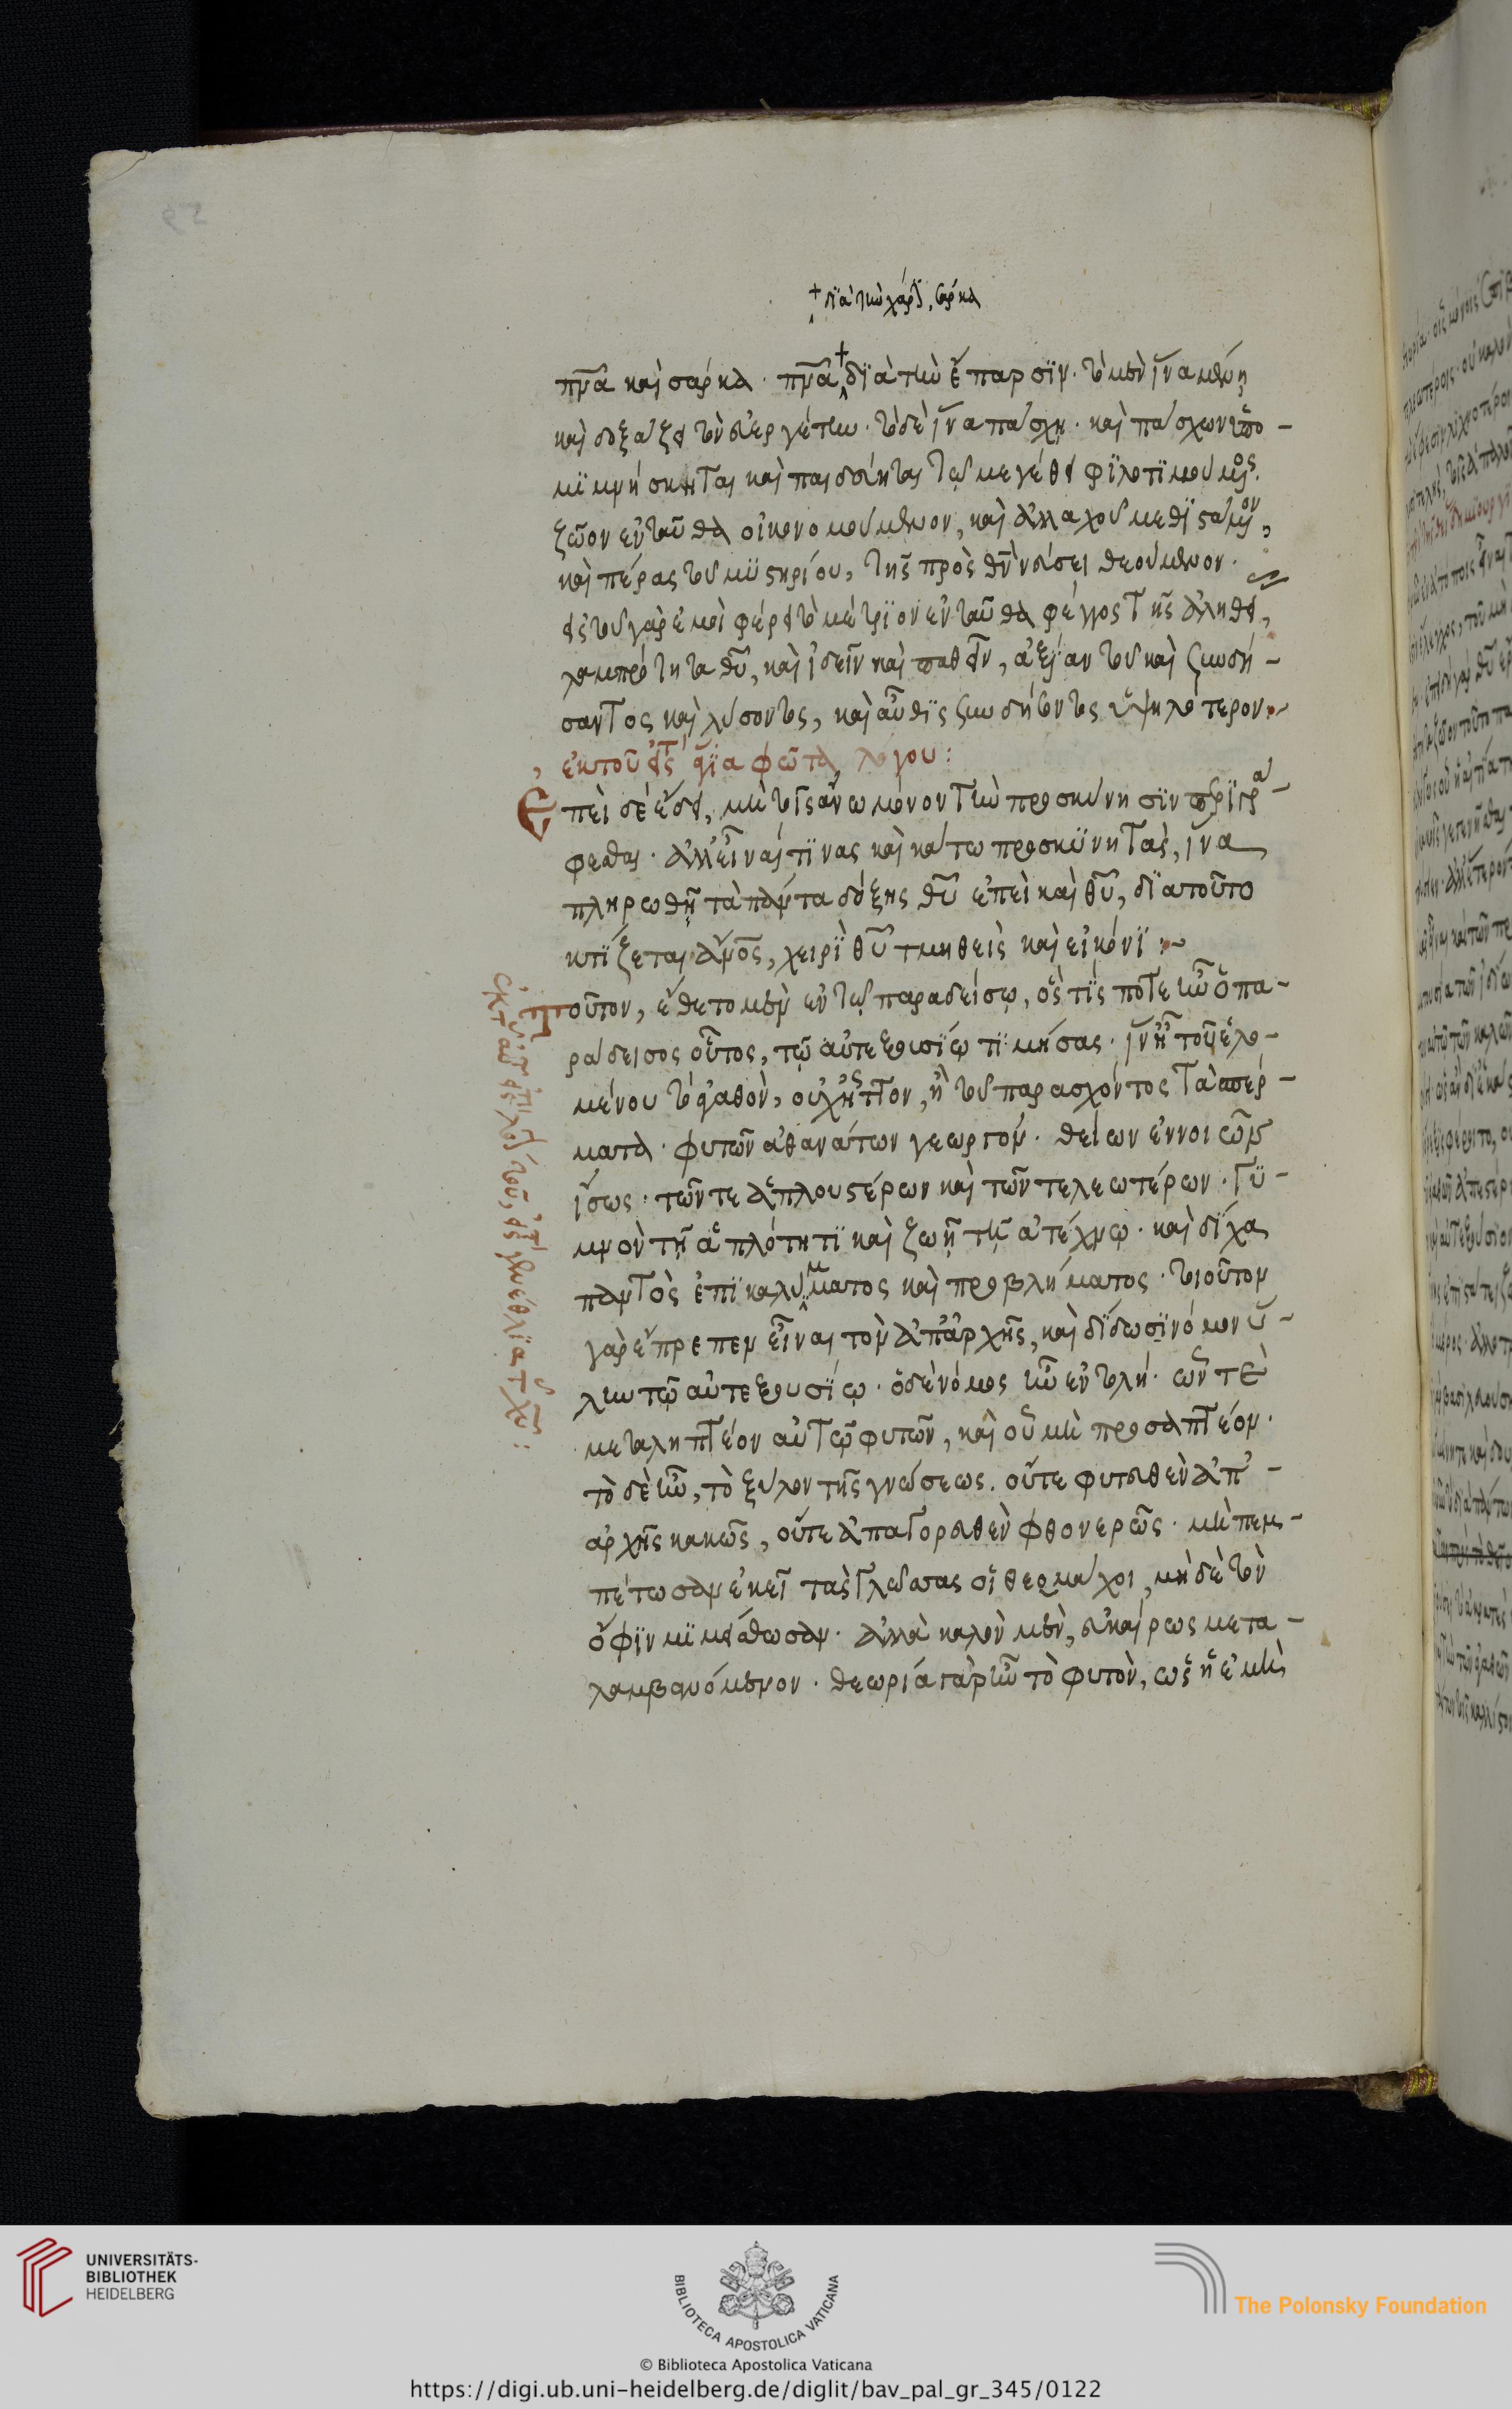 + διὰ τὴν χάριν, σάρκα
πνα καὶ σάρκα · πνα + διὰ τὴν ἔπαρσιν · τὸ μὲν ἵνα μένῃ
καὶ δοξάζει τὸν εὐεργέτην · τὸ δὲ ἵνα πάσχῃ · καὶ πάσχων ὑπο-
μιμνήσκηται καὶ παιδεύηται τῷ μεγέθει φιλοτιμούμενος ·
ζῶον ἐνταῦθα οἰκονομούμενον, καὶ ἀλλαχοῦ μεθιστάμενον,
καὶ πέρας τοῦ μυστηρίου, τῆς πρὸς θν νεύσει θεούμενον ·
εἰς τοῦ γὰρ ἐμοὶ φέρει τὸ μέτριον ἐνταῦθα φέγγος τῆς ἀληθεί,
λαμπρότητα θυ, καὶ ἰδεῖν καὶ παθεῖν, ἀξίαν τοῦ καὶ συνδή-
σαντος καὶ λύσοντος, καὶ αὖθις συνδήσοντος ὑψηλότερον
ἐκ τοῦ εἰς τὰ ἅγια φῶτα λόγου :
Ἐπεὶ δὲ ἔδει, μὴ τοῖς ἄνω μόνον τὴν προσκύνησιν περιγρά-
φεσθαι · ἀλλ' εἶναί τινας καὶ κάτω προσκυνητάς, ἵνα
πληρωθῇ τὰ πάντα δόξης θυ ἐπεὶ καὶ θυ, διὰ τοῦτο
κτίζεται ἄνος, χειρὶ θυ τιμηθεὶς καὶ εἰκόνι
τοῦτον, ἔθετο μὲν ἐν τῷ παραδείσῳ, ὅς τίς ποτε ἦν ὁ πα-
ράδεισος οὗτος, τῷ αὐτεξουσίῳ τιμήσας · ἵν' ᾖ τοῦ ἑλο-
μένου τὸ ἀγαθὸν, οὐχ ἧττον, ἢ τοῦ παρασχόντος τὰ σπέρ-
ματα · φυτῶν ἀθανάτων γεωργόν · θείων ἐννοιῶν
ἴσως · τῶν τε ἁπλουστέρων καὶ τῶν τελεωτέρων · γυ-
μνὸν τῇ ἁπλότητι καὶ ζωῇ τῇ ἀτέχνῳ · καὶ δίχα
παντὸς ἐπικαλύμματος καὶ προβλήματος · τοιοῦτον
γὰρ ἔπρεπεν εἶναι τὸν ἀπ' ἀρχῆς, καὶ δίδωσι νόμον ὕ-
λην τῷ αὐτεξουσίῳ · ὁ δὲ νόμος ἦν ἐντολή · ὧν τε
μεταληπτέον αὐτῷ φυτῶν, καὶ οὗ μὴ προσαπτέον ·
τὸ δὲ ἦν, τὸ ξύλον τῆς γνώσεως. οὔτε φυτευθὲν ἀπ'-
ἀρχῆς κακῶς, οὔτε ἀπαγορευθὲν φθονερῶς · μὴ πεμ-
πέτωσαν ἐκεῖ τὰς γλώσσας οἱ θεομάχοι, μὴ δὲ τὸν
ὄφιν μιμείσθωσαν · ἀλλὰ καλὸν μὲν, εὐκαίρως μετα-
λαμβανόμενον · θεωρία γὰρ ἦν τὸ φυτὸν, ὡς ἡ ἐμὴ
UNIVERSITÄTS-
BIBLIOTHEK
HEIDELBERG
BIBLIOTECA APOSTOLICA VATICANA
The Polonsky Foundation
© Biblioteca Apostolica Vaticana
https://digi.ub.uni-heidelberg.de/diglit/bav_pal_gr_345/0122